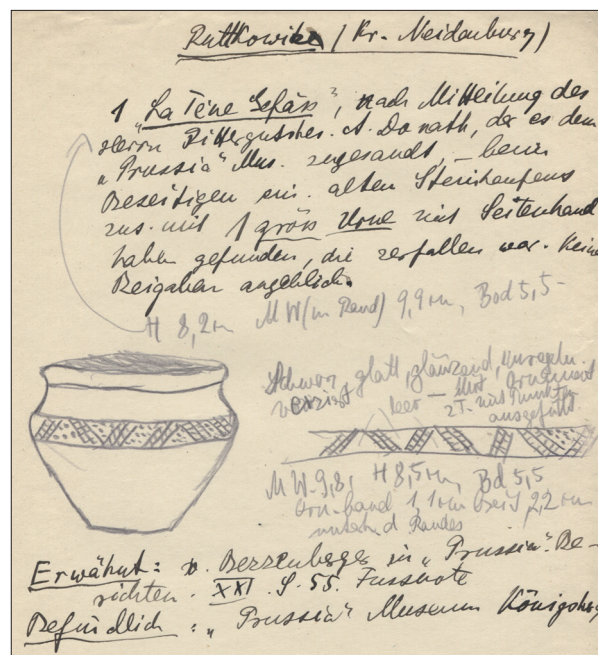 Ruttkowitz (Kr. Neidenburg)
1 "La Tène Gefäss", nach Mitteilung des
Herrn Rittergutsbes. A. Donath, der es dem
"Prussia" Mus. zugesandt, – beim
Beseitigen ein. alten Steinhaufens
zus. mit 1 gröss Urne mit Seitenhand
haben gefunden, die zerfallen war. Keine
Beigaben angeblich.
H 8,2 cm M W (im Rand) 9,9 cm, Bod 5,5-
Schwarz, glatt, glänzend,
verziert leer – Ornament
z T. mit Punkten
ausgefüllt
M W. 9,8, H 8,5 cm, Bd 5,5
Orn. band 1,1 cm breit 2,2 cm
unterh d Randes
Erwähnt: v. Bezzenberger in "Prussia" Be-
richten. XXI. S. 55. Fussnote
Befindlich: "Prussia" Museum Königsberg